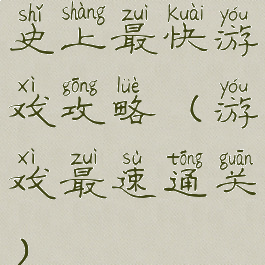 shǐ shàng zuì kuài yóu
史上最快游
xì gōng lüè yóu
戏攻略（游
xì zuì sù tōng guān
戏最速通关
）